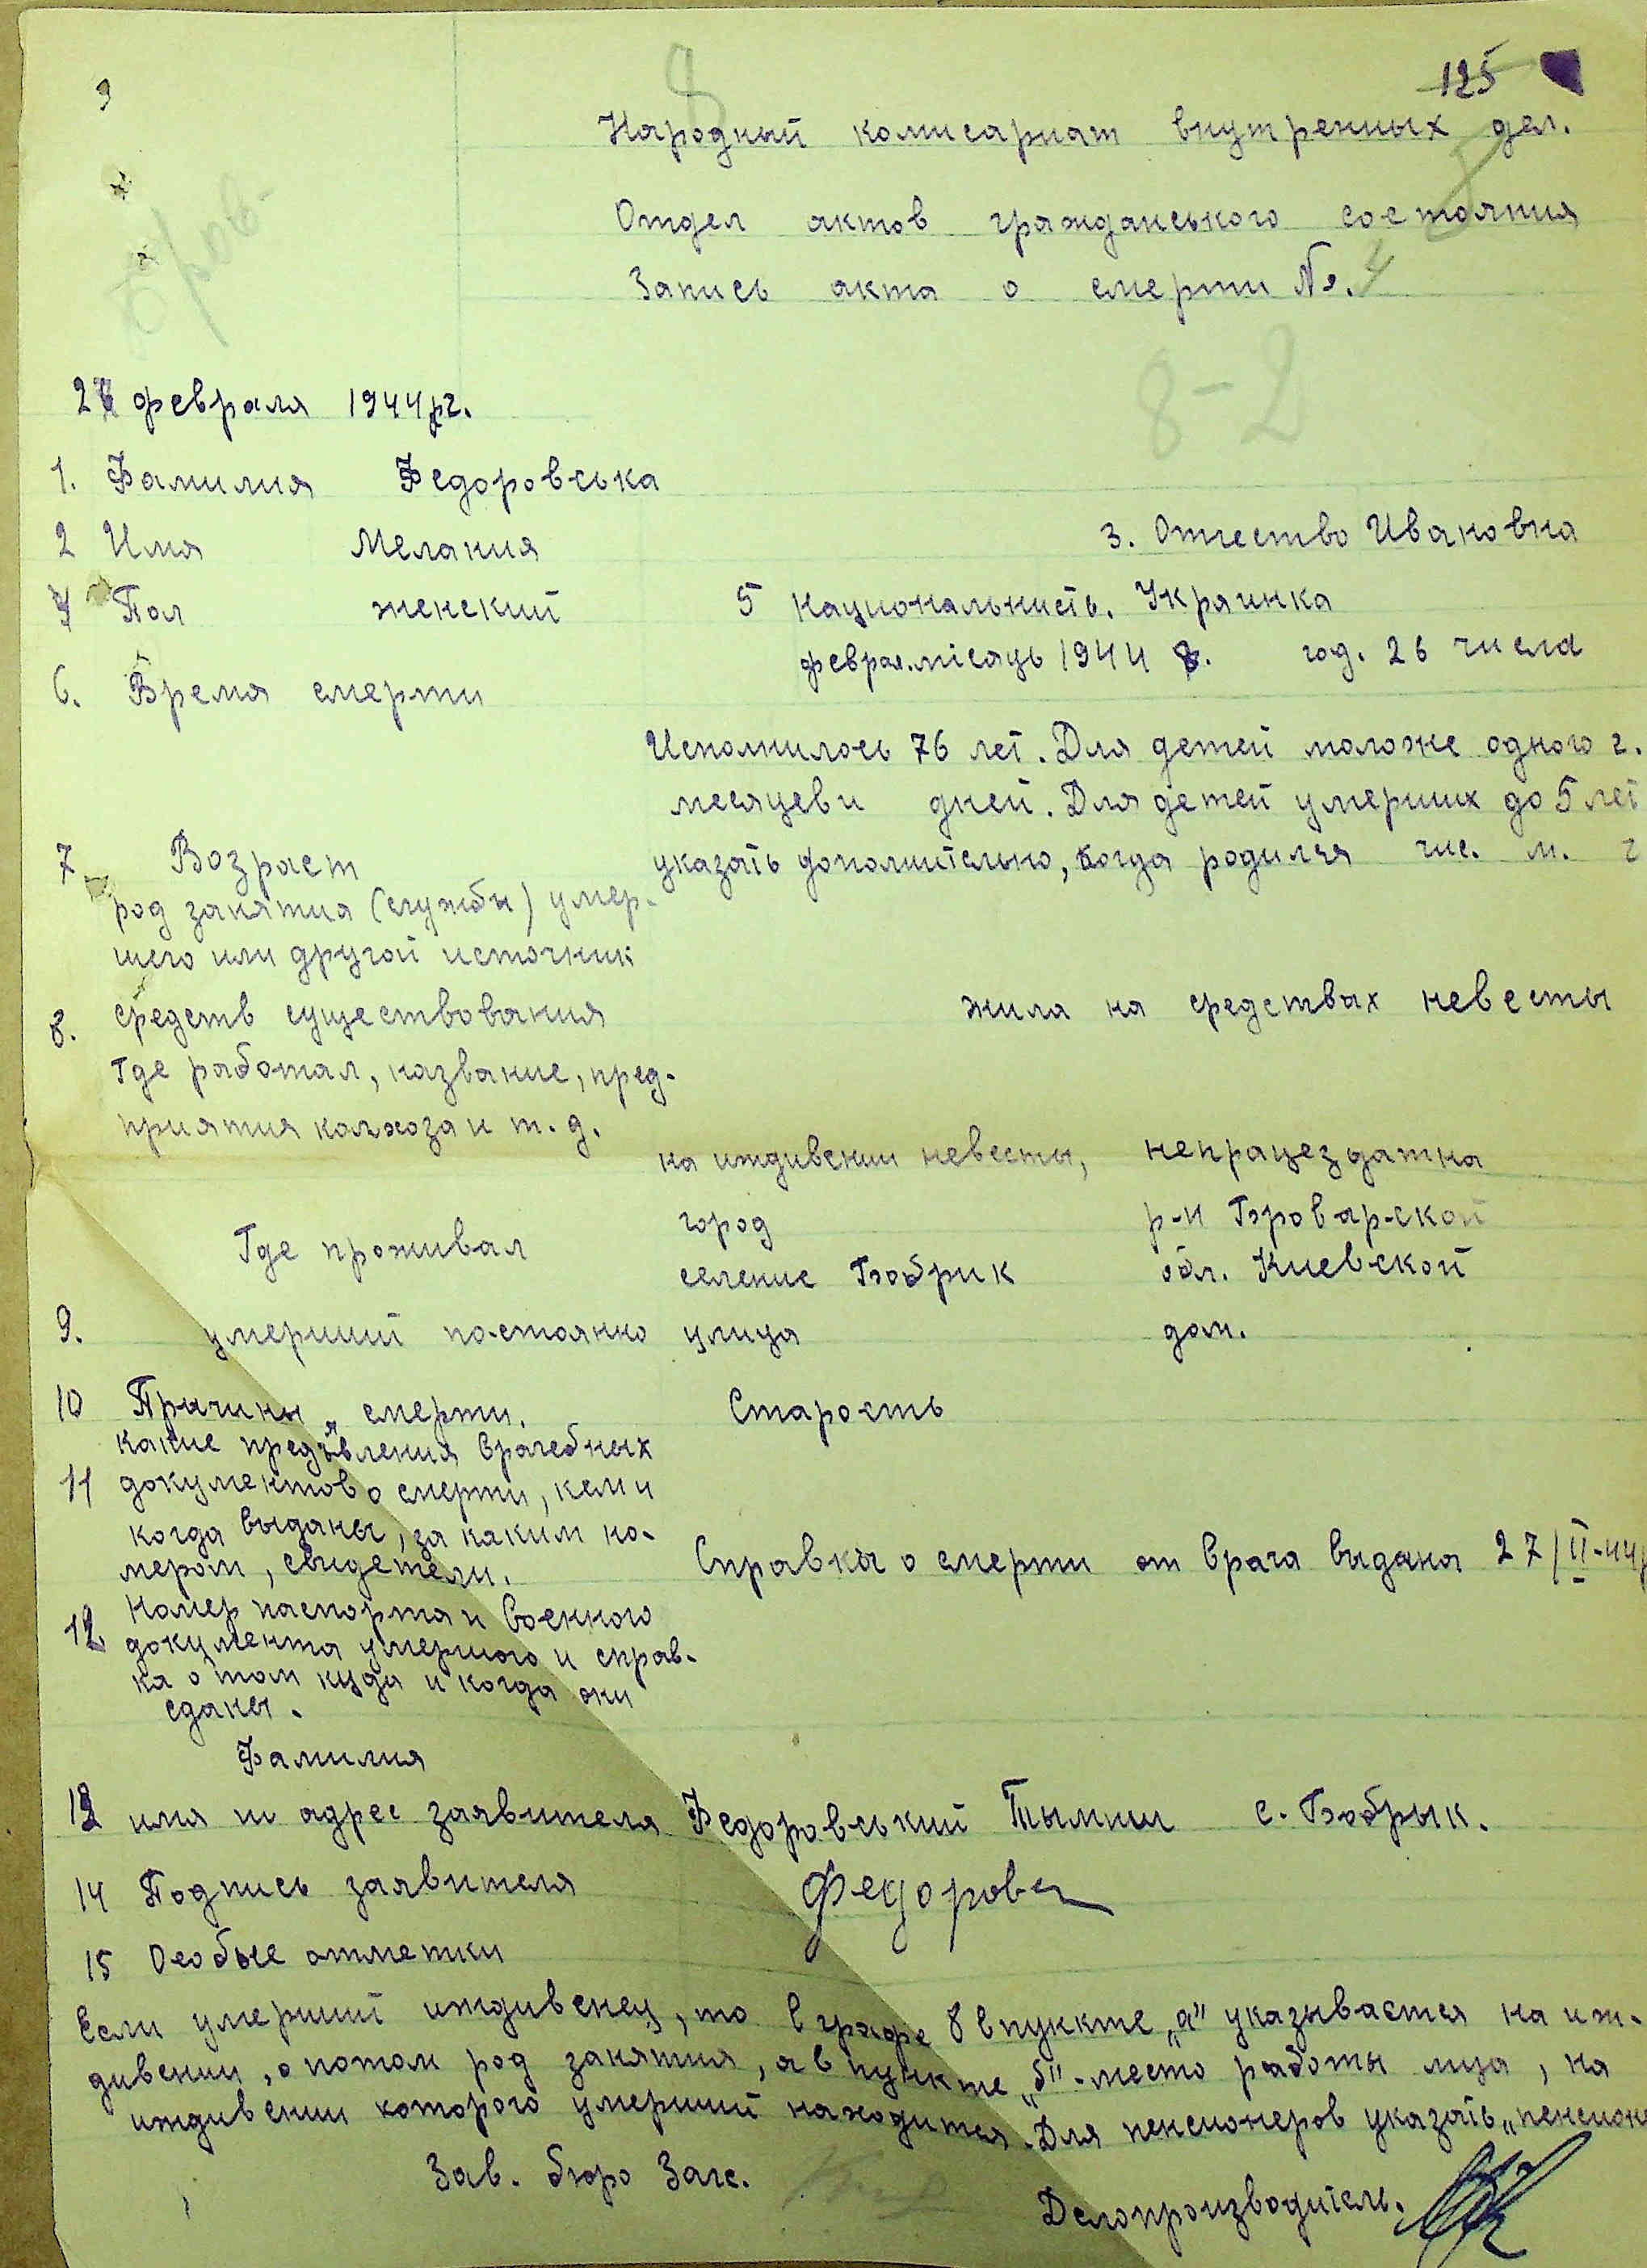 125
Народный комисариат внутренных дел.
Отдел актов гражданського состояния
Запись акта о смерти №. 4
8-2
февраля 1944 рг.
1. Фамилия Федоровська
2 Имя Мелания 3. Отчество Ивановна
4 Пол женский 5 Национальность. Украинка
6. Время смерти феврал. місяць 1944 г. год. 26 числа
Исполнилось 76 лет. Для детей моложе одного г.
месяцев и дней. Для детей умерших до 5 лет
7 Возраст указать дополнительно, когда родился чис. м. г
род занятия (службы) умер-
шего или другой источник
8. средств существования жила на средствах невесты
Где работал, название, пред-
приятия колхоза и т. д.
на иждивении невесты, непрацездатна
город р-н Броварской
Где проживал селение Бобрик обл. Киевской
9. умерший постоянно улица дом.
10 Причины смерти. Старость
какие предъявления врачебных
11 документов о смерти, кем и
когда выданы, за каким но-
мером, свидетели. Справка о смерти от врача видана 27/II-44
Номер паспорта и военного
12 документа умершого и справ-
ка о том куда и когда они
сданы.
Фамилия
13 имя и адрес заявителя Федоровський Тымиш с. Бобрык.
14 Подпись заявителя
15 Особые отметки
Если умерший иждивенец, то в графе 8 в пункте „а" указывается на иж-
дивении, а потом род занятия, а в пункте „б" - место работы лица, на
иждивении которого умерший находится. Для пенсионеров указать „пенсионе
Зав. бюро Загс.
Делопроизводитель.